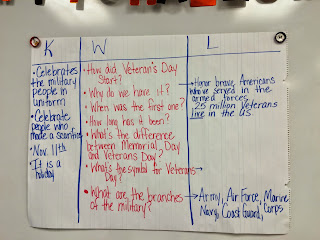 K
• Celebrates
the military
people in
uniform
• Celebrate
people who
made a sacrifice
• Nov. 11th
• It is a
holiday
W
• How did Veteran's Day
Start?
• Why do we have it?
• When was the first one?
• How long has it been?
• What's the difference
between Memorial Day
and Veterans Day?
• What's the symbol for Veterans
Day?
• What are the branches
of the military?
L
• Honor brave Americans
who've served in the
armed forces.
25 million Veterans
live in the US.
→
→ Army, Air Force, Marine
Navy, Coast Guard, Corps